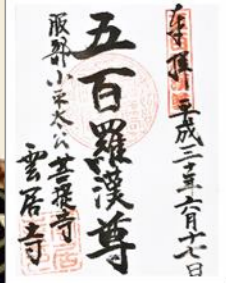 奉拝 平成三十年六月十七日
五百羅漢尊
服部小平太公菩提寺
雲居寺